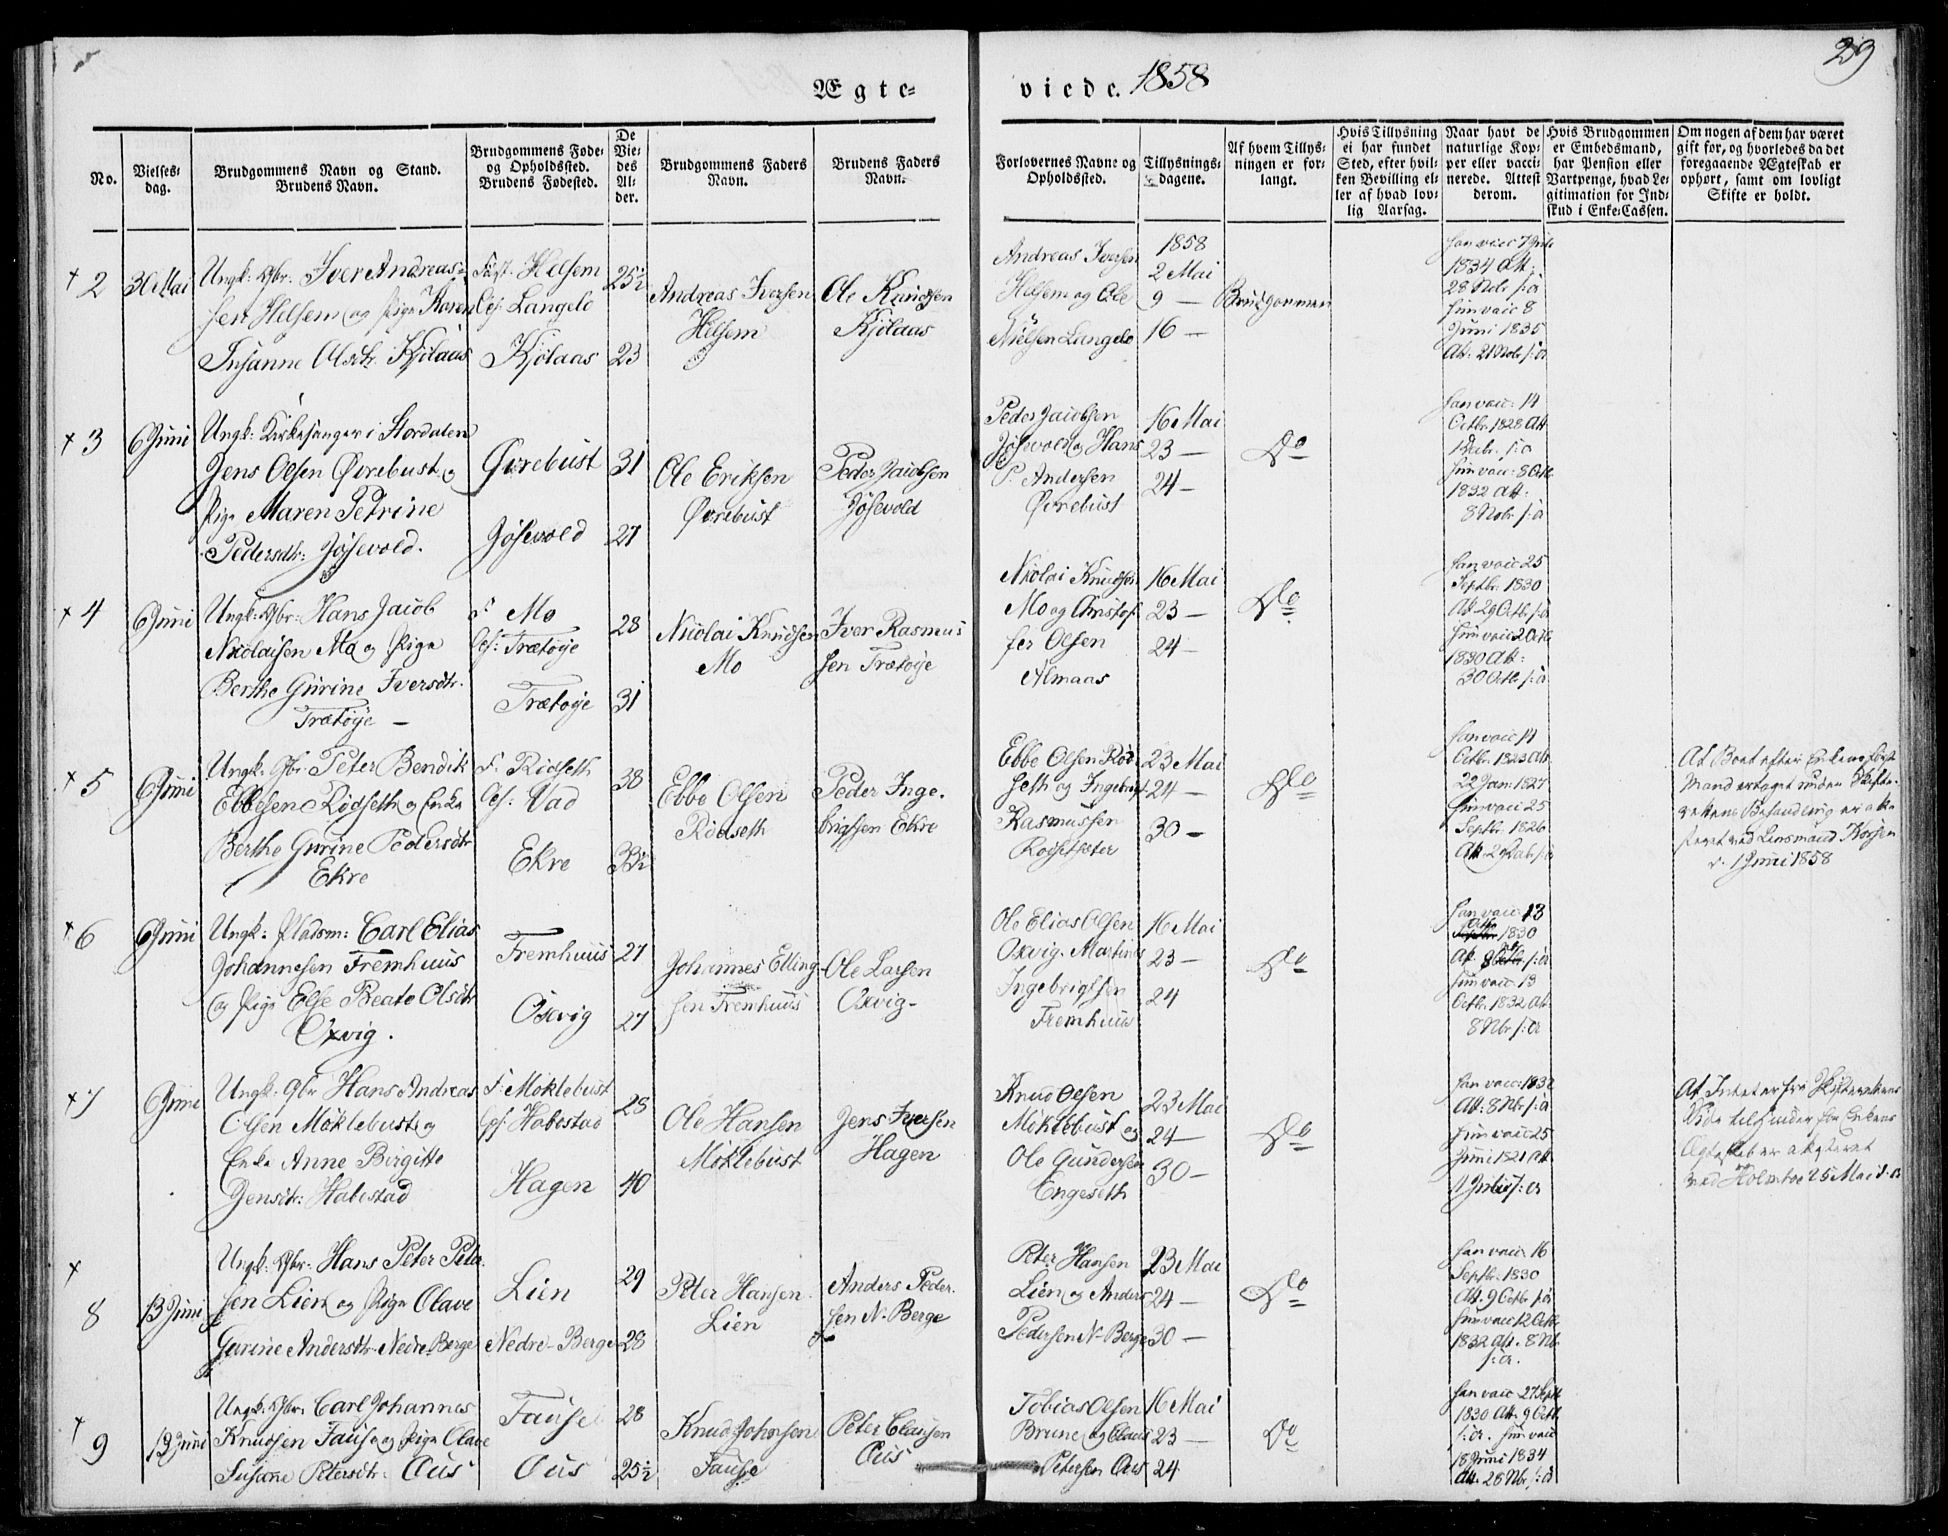 29
Ægte-
viede. 1858
No.
Vielses-
dag.
Brudgommens Navn og Stand.
Brudens Navn.
Brudgommens Føde-
og Opholdssted.
Brudens Fødested.
De
Vie-
des
Al-
der.
Brudgommens Faders
Navn.
Brudens Faders
Navn.
Forlovernes Navne og
Opholdssted.
Tillysnings-
dagene.
Af hvem Tillys-
ningen er for-
langt.
Hvis Tillysning
ei har fundet
Sted, efter hvil-
ken Bevilling el-
ler af hvad lov-
lig Aarsag.
Naar havt de
naturlige Kop-
per eller vacci-
nerede. Attest
derom.
Hvis Brudgommen
er Embedsmand,
har Pension eller
Vartpenge, hvad Le-
gitimation for Ind-
skud i Enke-Cassen.
Om nogen af dem har været
gift før, og hvorledes da det
foregaaende Ægteskab er
ophørt, samt om lovligt
Skifte er holdt.
2
Mai
Ungk: Gbr. Iver Andreas-
sen Helsem og Pige Karen
Susanne Olsdr. Kjølaas
Helsem
Langelo
Kjølaas
25½
23
Andreas Iversen
Helsem
Ole Knudsen
Kjølaas
Andreas Iversen
Helsem og Ole
Nielsen Langelo
1858
2 Mai
9 —
16 —
Brudgommen
han vacc 7
1834 Att:
28 Nobr s: a
hun vacc 8
Juni 1835
Att: 21 Nobr s: a
3
6 Juni
Ungk: Kirkesanger i Stordalen
Jens Olsen Øvrebust og
Pige Maren Petrine
Pedersdr: Jøsevold.
Øvrebust
Jøsevold
31
27
Ole Eriksen
Øvrebust
Peder Jacobsen
Jøsevold
Peder Jacobsen
Jøsevold og Hans
P. Andersen
Øvrebust
16 Mai
23 —
24 —
Do
han vacc: 14
Octbr. 1828 Att
s: a
hun vacc: 8 Octb.
1832 Att:
8 Nobr. s: a
4
6 Juni
Ungk: Gbr: Hans Jacob
Nicolaisen Mo og Pige
Berthe Gurine Iversdtr.
Trætøye —
F. Mo
Trætøye
Trætøye
28
31
Nicolai Knudsen
Mo
Iver Rasmus
sen Trætøye
Nicolai Knudsen
Mo og Christof-
fer Olsen
Almaas
16 Mai
23 —
24 —
Do
han vacc 25
Septbr. 1830
Att 29 Octb. s: a
hun vacc 2 Octb
1830 Att:
30 Octb. s: a
5
6 Juni
Ungk: Gbr. Peter Bendik
Ebbesen Rødseth og Enke
Berthe Gurine Pedersdtr
Ekre
F. Rødseth
Vad
Ekre
38
33½
Ebbe Olsen
Rødseth
Peder Inge-
brigtsen Ekre
Ebbe Olsen Rød-
seth og Ingebrigt
Rasmussen
Rodsetseter
23 Mai
24 —
30 —
Do
han vacc 11
Octbr. 1823 Att
22 Jan: 1827
hun vacc 25
Septbr. 1826
At Boet efter Enkens første
Mand er taget under Skifte-
rettens Behandling er atte-
steret ved Lensmand
d. 1 Juni 1858
6
6 Juni
Ungk: Pladsm: Carl Elias
Johannesen Fremhuus
og Pige Else Beate Olsdtr
Oxvig.
Fremhuus
Oxvig
27
27
Johannes Elling-
sen Fremhuus
Ole Larsen
Oxvig
Ole Elias Olsen
Oxvig. Martinus
Ingebrigtsen
Fremhuus
16 Mai
23 —
24
Do
han vacc 13
Octbr. 1830
hun vacc 13
Octbr. 1832 Att
8 Nbr. s: a
7
6 Juni
Ungk: Gbr Hans Andreas
Olsen Møklebust og
Enke Anne Birgitte
Jensdtr: Habestad
F: Møklebust
Habestad
Hagen
28
40
Ole Hansen
Møklebust
Jens Iversen
Hagen
Knud Olsen
Møklebust og
Ole Gundersen
Engeseth
23 Mai
24 —
30 —
Do
han vacc: 1832
Att: 8 Nbr s: a
hun vacc 25
Juni 1821 Att
s: a
At Intet er fra Skifterettens
Side til Hinder for Enkens
Ægteskab er attesteret
25 Mai s: a
8
13 Juni
Ungk: Gbr: Hans Peter Peter-
sen Lien og Pige Olave
Gurine Andersdtr. Nedre-Berge
Lien
Nedre-Berge
29
28
Peter Hansen
Lien
Anders Peder-
sen N. Berge
Peter Hansen
Lien og Anders
Pedersen N- Berge
23 Mai
24 —
30 —
Do
han vacc 16
Septbr. 1830
Att. 9 Octbr. s: a
hun vacc 12 Octb
1832 Att. 8 Nbr
s: a.
9
13 Juni
Ungk: Gbr: Carl Johannes
Knudsen Fause og Pige Olave
Susane Petersdtr. Aus
Fause
Aus
28
25½
Knud Johnsen
Fause
Peter Clausen
Aus
Tobias Olsen
Brune og Claus
Petersen Aus
16 Mai
23 —
24
Do
han vacc 27 Sept
1830 Att. 9 Octb
s: a. hun vacc
18 Juni 1834
Att. 28 Nbr. s: a